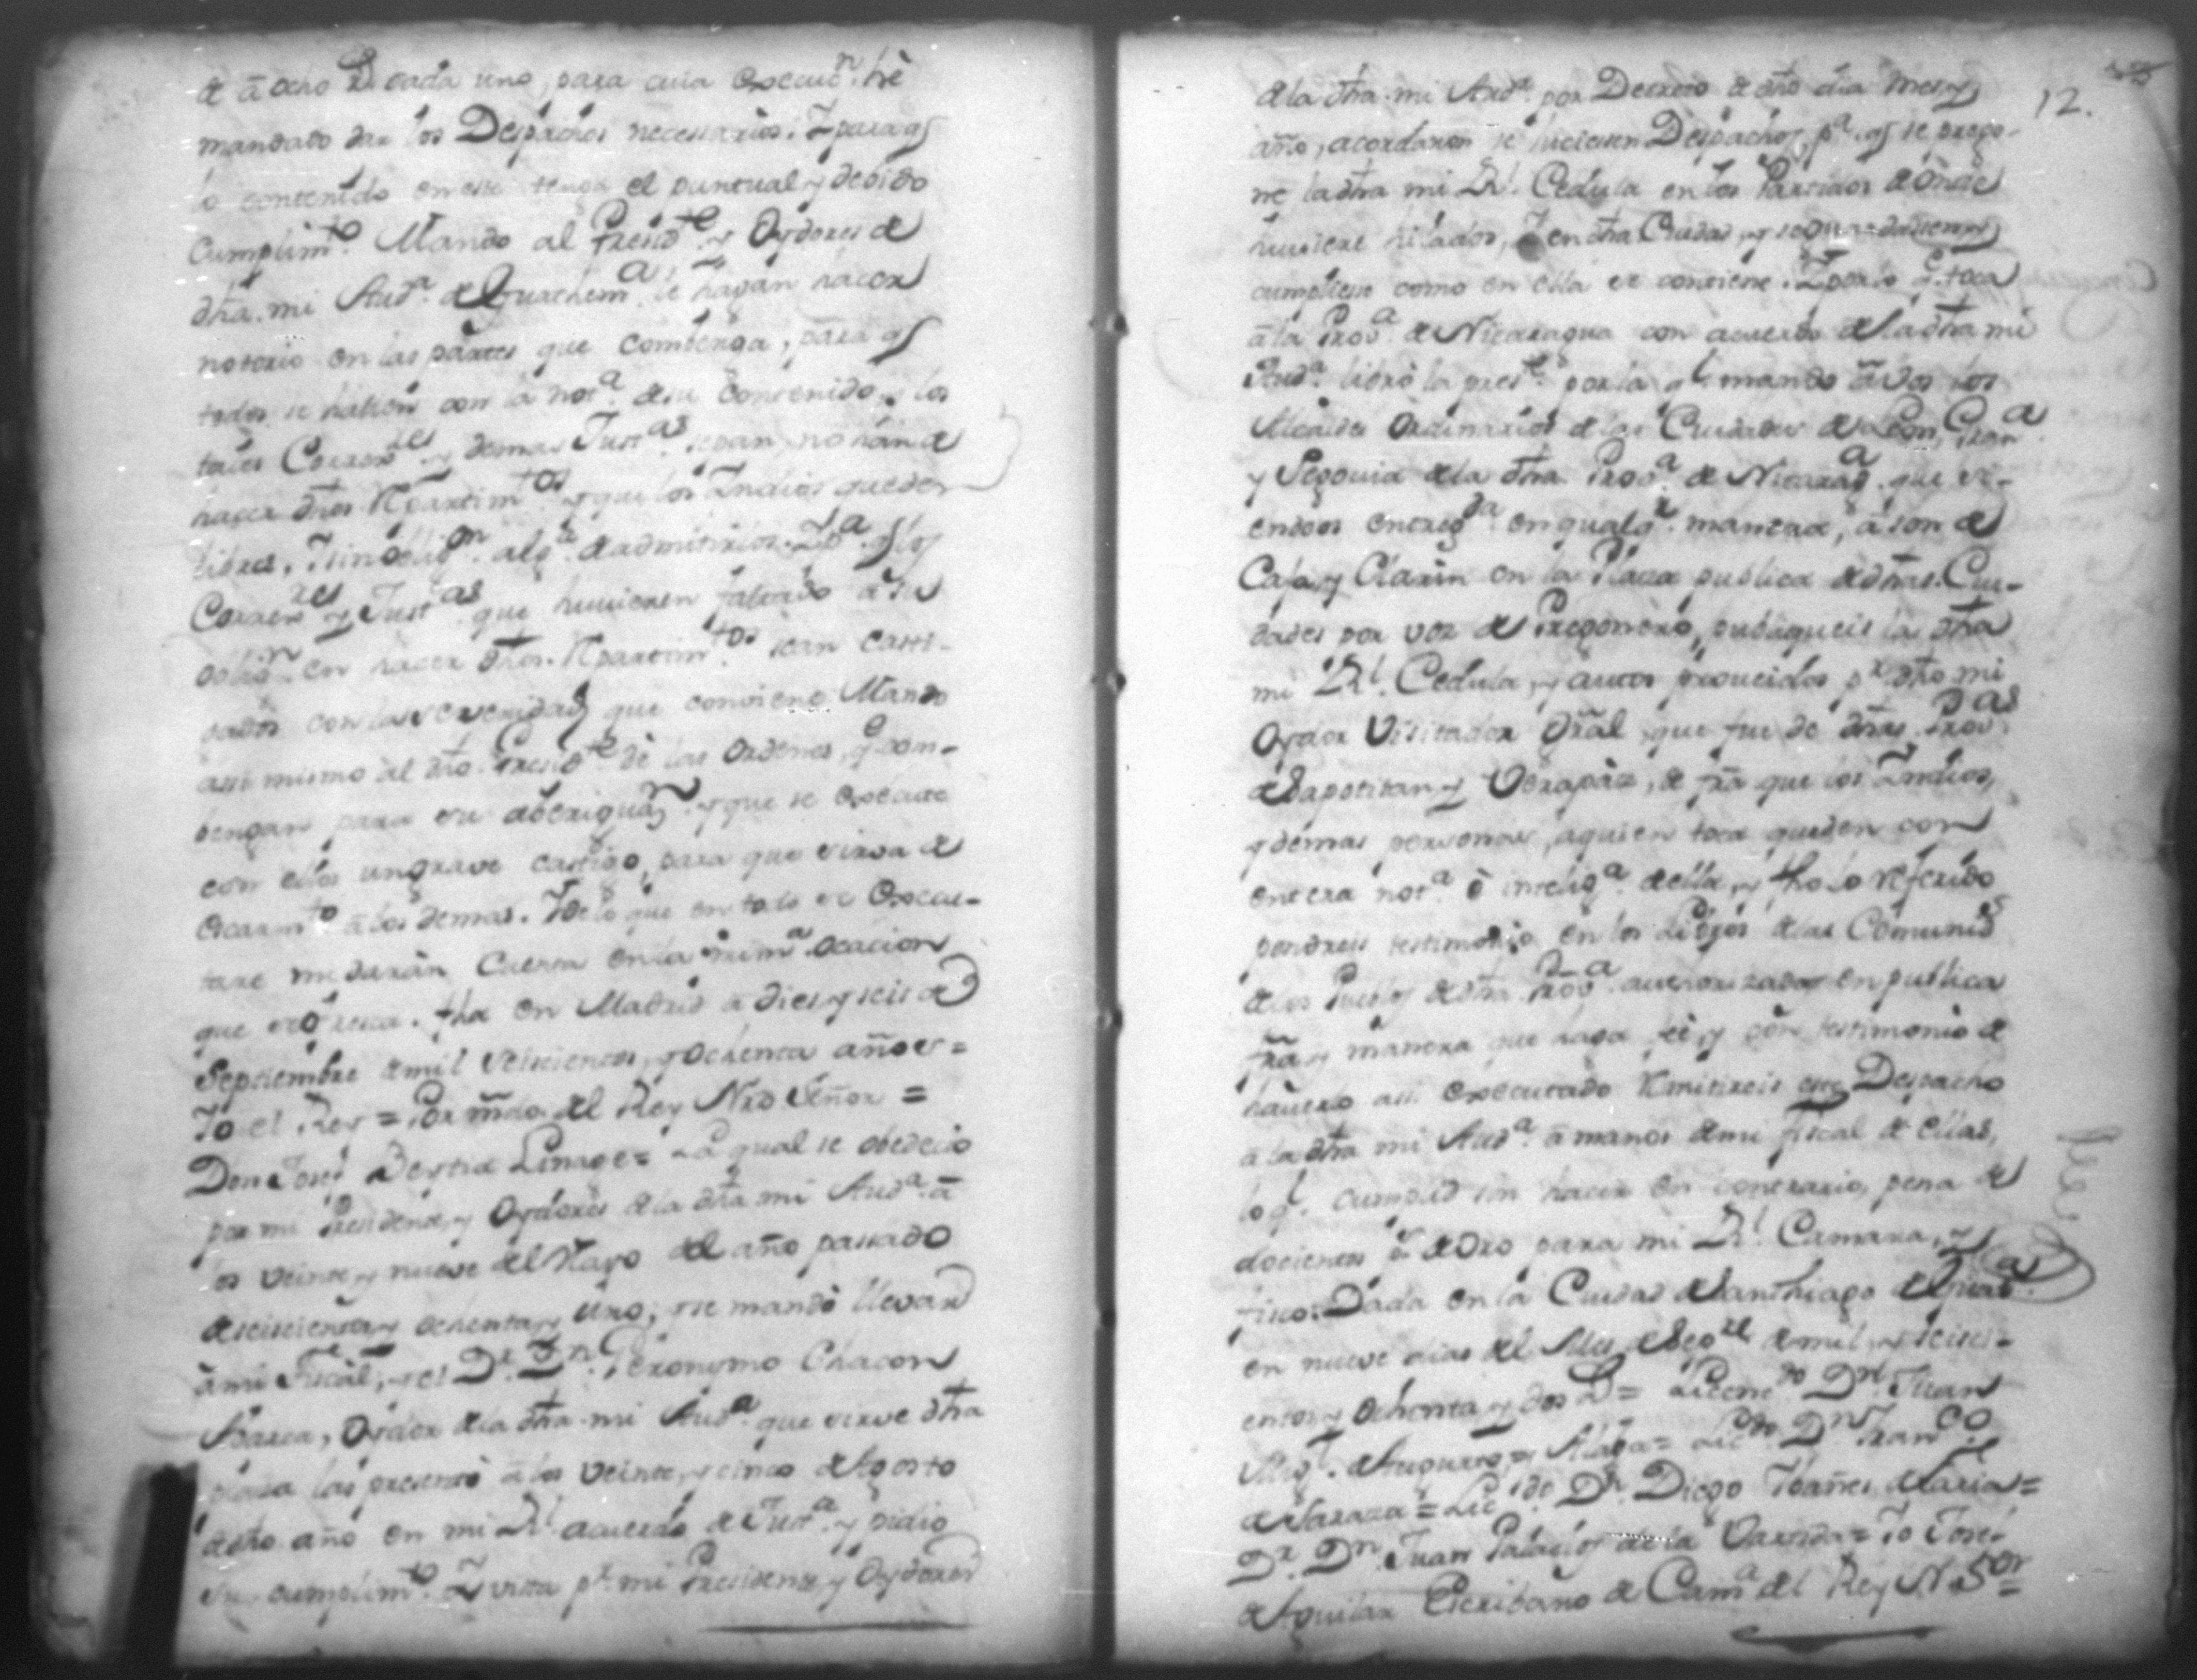 de â ocho R.s cada uno, para cuia execuc.n hè
mandado dar los Despachos necessarios. Y para q
lo contenido en este tenga el puntual y debido
Cumplim.to Mando al Presid.te y Oydores de
dha. mi Aud.a de Guathem.a le hagan hacer
notorio en las partes que combenga, para q
todos se hallen con la not.a de su contenido, y los
tales Correx.res y demas Just.as sepan no han de
hacer dhos. Repartim.tos y que los Indios queden
libres, y sin oblig.on alg.a de admitirlos. Y p.a q los
Correx.res y Just.as que huuieren faltado â su
oblig.n en hacer dhos. Repartim.tos sean casti-
gados con la severidad que conviene Mando
assi mismo al dho. Presid.te dè las ordenes, q com-
bengan para su aberiguaz.n y que se execute
con ellos un grave castigo, para que sirva de
escarm.to â los demas. Y de lo que en todo se execu-
tare me daràn Cuenta en la prim.a ocacion
que se ofresca. fha en Madrid â dies y seis de
Septiembre de mil seiscientos, y ochenta años =
Yo el Rey = Por mdo. del Rey Nro Señor =
Don Josef Beytia Linage = La qual se obedecio
por mi Presidente, y Oydores de la dha mi Aud.a â
los veinte, y nueve de Mayo del año passado
de seiscientos, y ochenta, y uno, y se mandò llevar
â mi Fiscal, y el D.r D.n Geronymo Chacon
Abarca, Oydor de la dha. mi Aud.a que sirve dha
plaza las presentò â los veinte, y cinco de Agosto
de dho año en mi R.l acuerdo de Just.a y pidio
su cumplim.to Y vista p.r mi Presidente, y Oydores
12.
de la dha. mi Aud.a por Decreto de dho dia mes y
año, acordaron se hiciesen Despachos, p.a q se prego-
ne la dha mi R.l Cedula en los Partidos donde
huviere hilados, y en dha Ciudad, y se guardasen y
cumpliese como en ella se contiene. Y por lo q toca
â la Prov.a de Nicaragua con acuerdo de la dha mi
Aud.a librò la pres.te por la q.l mando â vos los
Alcaldes Ordinarios de las Ciudades de Leon, Gran.a
y Segouia de la dha. Prov.a de Nicarag.a que si-
endoos entreg.da en qualq.r manera, â son de
Caja, y Clarin en la Plaza publica de dhas. Ciu-
dades por voz de Pregonero, publiqueis la dha
mi R.l Cedula, y autos proueidos p.r dho mi
Oydor Visitador Gral que fue de dhas. Prov.as
de Sapotitan y Verapàz, de fra que los Indios,
y demas personas, aquien toca queden con
entera not.a è intelig.a de ella, y fho lo referido
pondreis testimonio en los Libros de las Comunid.s
de los Pueblos de dha Prov.a autorizados en publica
fra, y manera que haga feè, y con testimonio de
hauerlo assi executado remitireis este Despacho
â la dha mi Aud.a â manos de mi fiscal de ellas,
lo q.l cumplid sin hacer en contrario, pena de
docientos p.s de Oro para mi R.l Camara, y
fisco. Dada en la Ciudad de Santhiago de Guath.a
en nueve dias del Mes de Sep.re de mil, y seisci-
entos y ochenta, y dos a.s = Licenc.do D.n Juan
Mig.l de Augurto, y Alaba = Lic.do D.n Fran.co
de Saraza = Lic.do D.n Diego Ybañes de Faria =
D.r D.n Juan Palacios de la Bastida = Yo Josef
de Aguilar Escribano de Cam.a del Rey N. S.or =